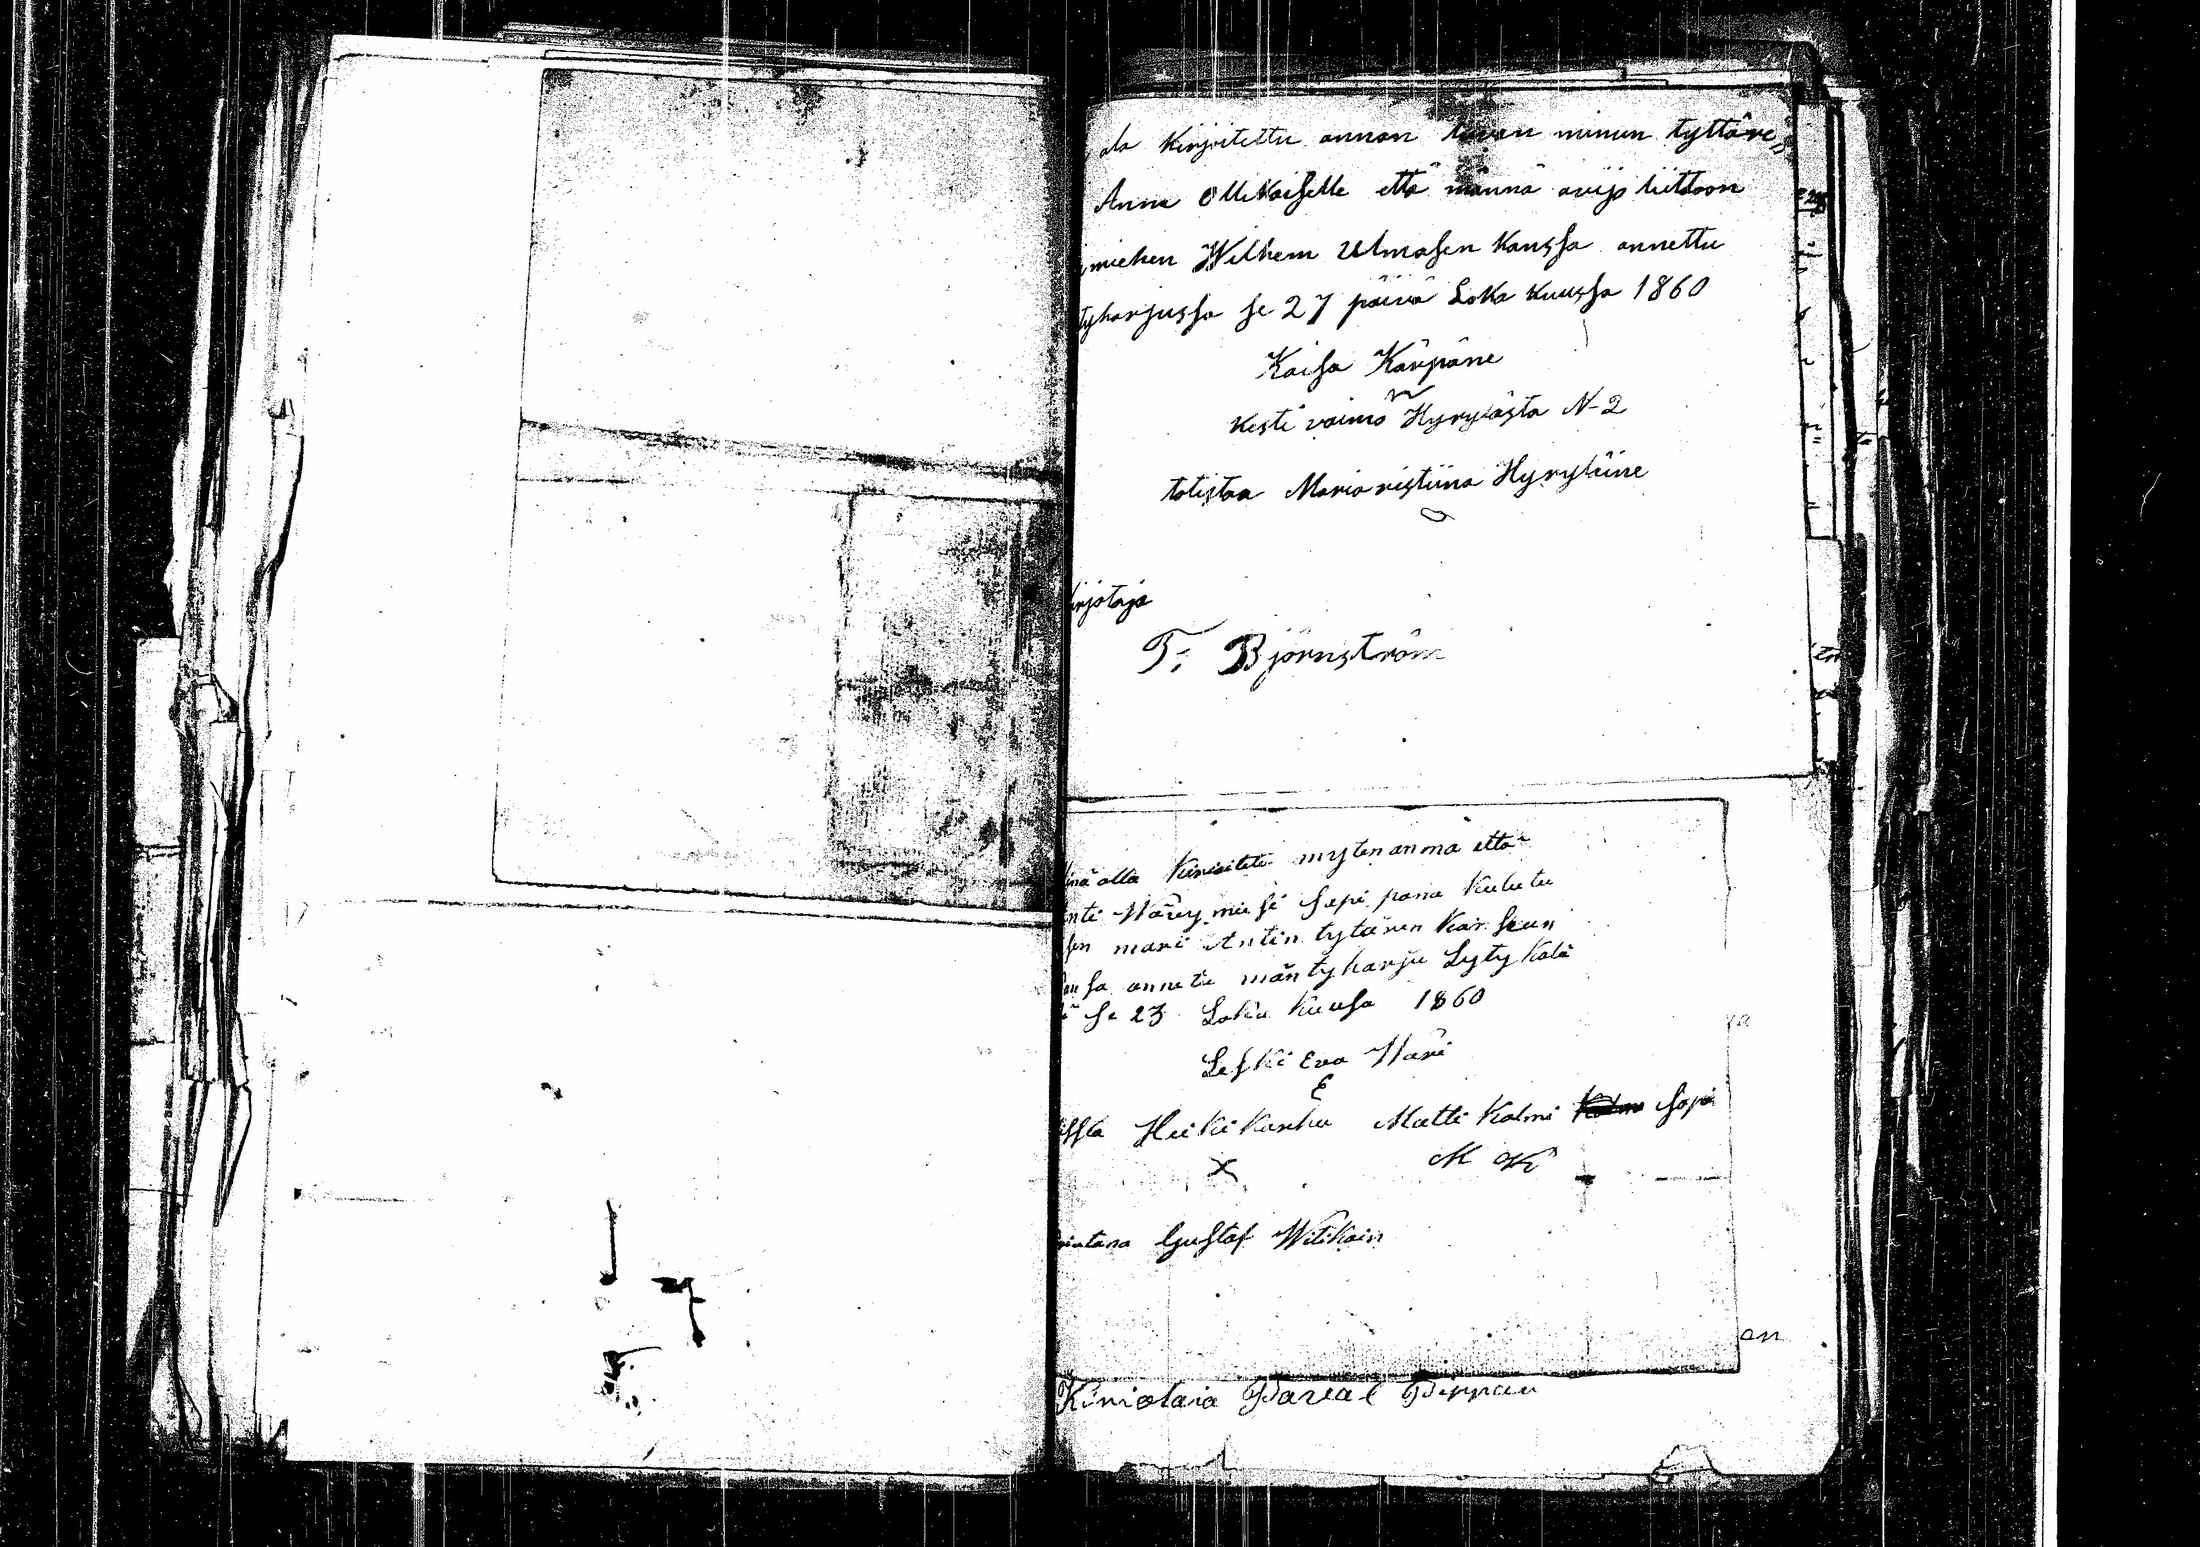 ala kirjoitettu annan luvan minun tyttäres
Anna Ollikaiselle että männä avijo liittoon
miehen Wilhem Ulmasen kanssa annettu
tyharjussa se 27 päivä Loka kuussa 1860
Kaisa Kärpäne
kesti vaimo Hyrylästä N-2
totistaa Maria ristiina Hyryläine
irjotaja
T: Björnström
inä alla kirioitetu myten anma että
nti Häry miesi sapi pana kulutu
sen mari Antin tytären kar
sa annetu mäntyharju Lytykälä
se 23 Loka kuusa 1860
Leski Eva Häri
E
issta Heiki karhu Matti kolmi sapi
X M K
Gustaf Witikain
an
Kiriotaia